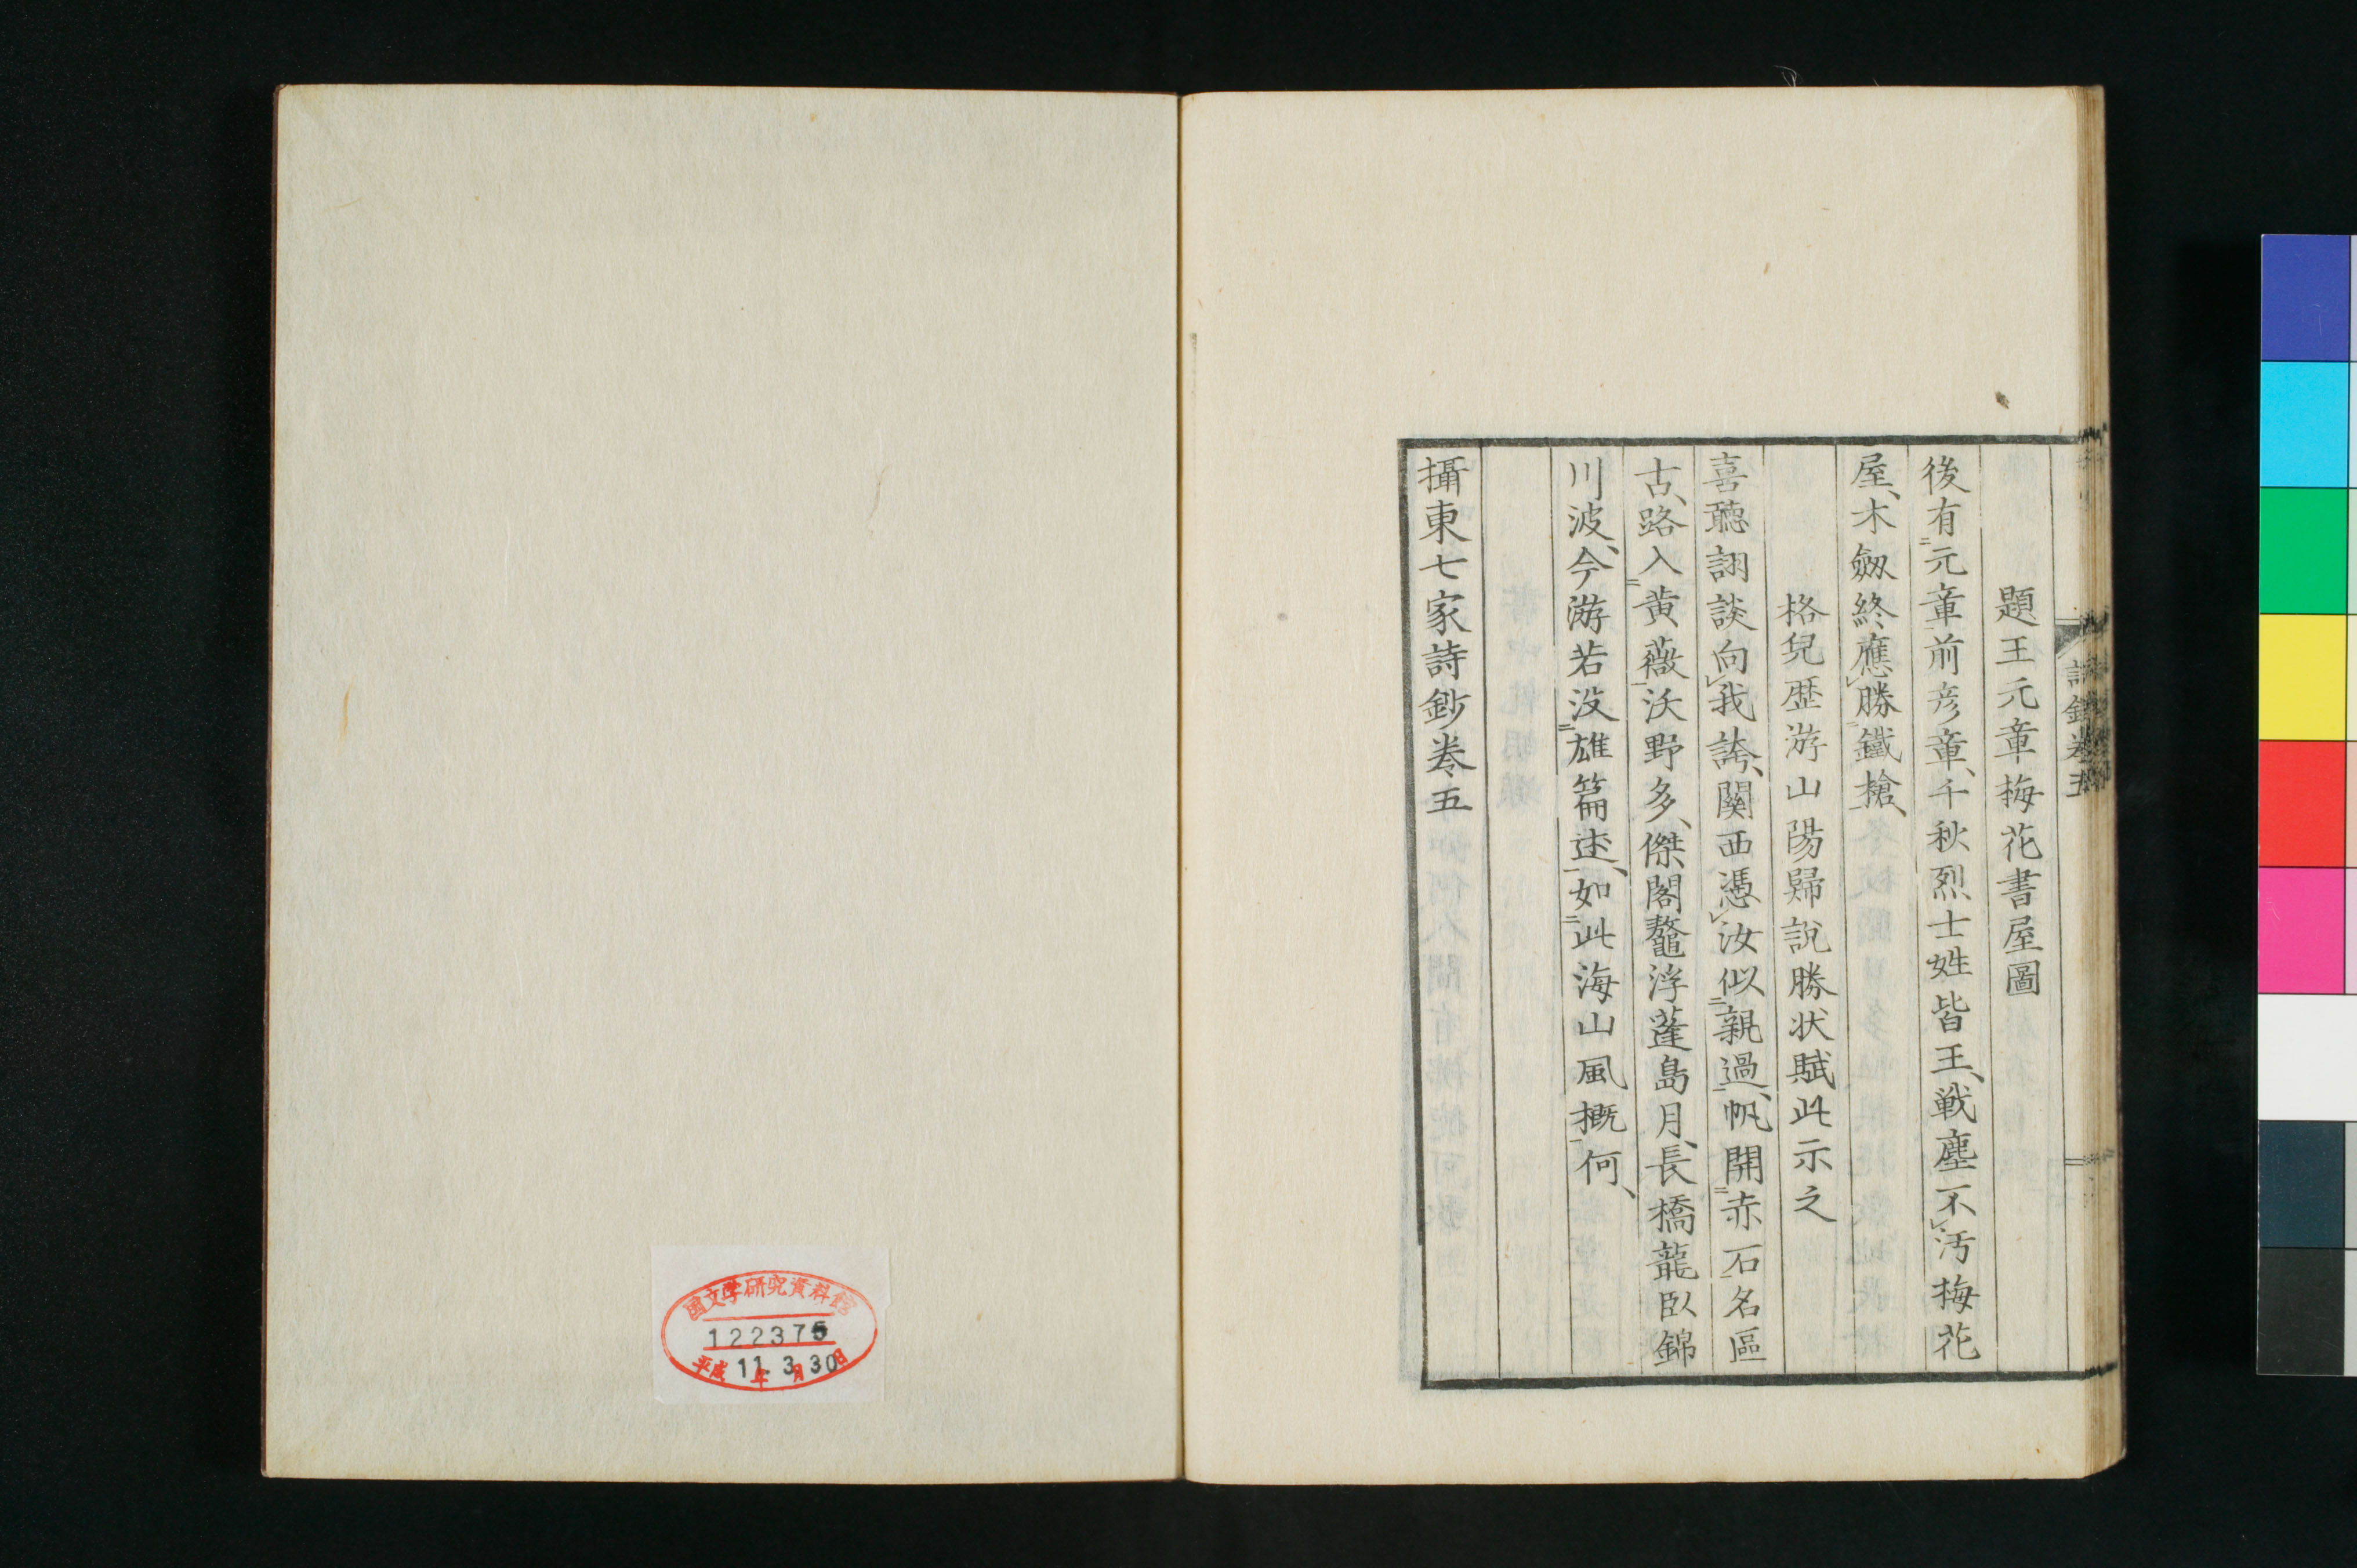 題王元章梅花書屋圖
後有元章前彦章、千秋烈士姓皆王、戦塵不汚梅花
屋、木劔終應勝鐵槍、
格兒歴游山陽歸說勝状賦此示之
喜聽詡談向我誇、關西憑汝似親過、帆開赤石名區
古、路入黄薇沃野多、傑閣鼇浮蓬島月、長橋龍臥錦
川波、今游若没雄篇述、如此海山風概何、
攝東七家詩鈔巻五
国文学研究資料館
122375
平成11年3月30日